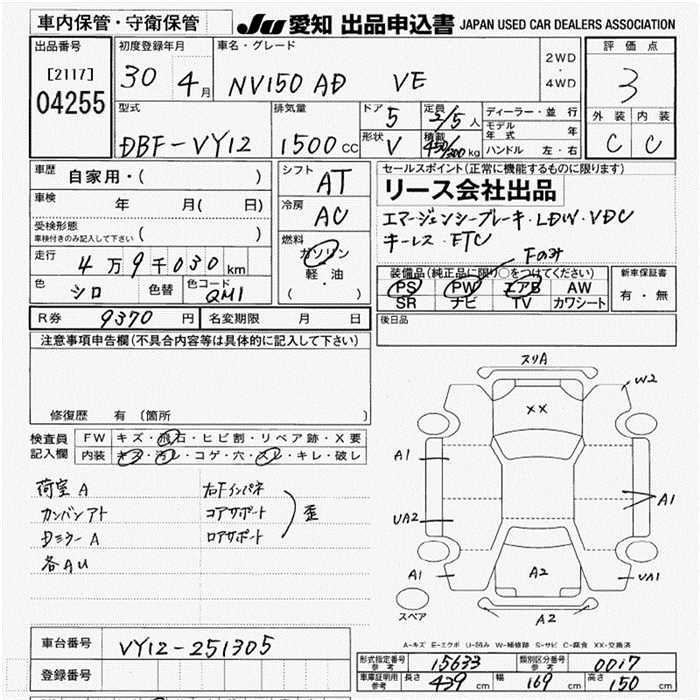 車内保管・守衛保管 JU 愛知 出品申込書 JAPAN USED CAR DEALERS ASSOCIATION
出品番号 初度登録年月 車名・グレード 2WD・4WD 評価点
[2117] 30 4月 NV150 AD VE 3
04255
型式 排気量 ドア 5 定員 2/5人 ディーラー・並行 外装 内装
モデル年式 年
DBF-VY12 1500cc 形状 V 積載 450/300kg ハンドル 左・右 C C
車歴 自家用・( ) シフト AT セールスポイント(正常に機能するものに限ります)
リース会社出品
車検 年 月( 日) 冷房 AC エマージェンシーブレーキ・LDW・VDC
受検形態 車検付きのみ記入して下さい ( ) キーレス・ETC
走行 4万9千030km 燃料 ガソリン Fのみ
軽・油
( )
装備品(純正品に限り○をつけてください) 新車保証書
色 シロ 色替 色コード QM1 PS PW エアB AW 有・無
SR ナビ TV カワシート
R券 9370円 名変期限 月 日 後日品
注意事項申告欄(不具合内容等は具体的に記入して下さい)
修復歴 有 〔箇所 〕
検査員記入欄 FW キズ・飛石・ヒビ割・リペア跡・X要
内装 キズ・汚レ・コゲ・穴・スレ・キレ・破レ
荷室A 右Fインパネ
カンバンアト コアサポート 歪
Dミラー A ロアサポート
各AU
スリA
W2
XX
A1
A1
UA2
A1 A2 UA1
スペア
A2
A-キズ E-エクボ U-凹み W-補修跡 S-サビ C-腐食 XX-交換済
車台番号 VY12-251305
形式指定番号 参考 15633 類別区分番号 参考 0017
登録番号 車庫証明用 参考 長さ 439cm 幅 169cm 高さ 150cm